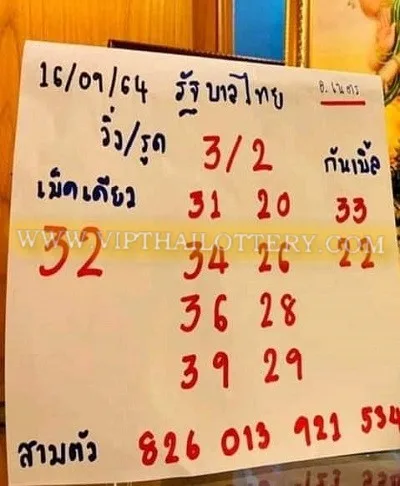 16/09/64 รัฐบาลไทย อ.เนตร
วิ่ง/รูด 3/2 กันเบิ้ล
เม็ดเดียว 31 20 33
32 34 26 22
WWW.VIPTHAILOTTERY.COM
36 28
39 29
สามตัว 826 013 921 534